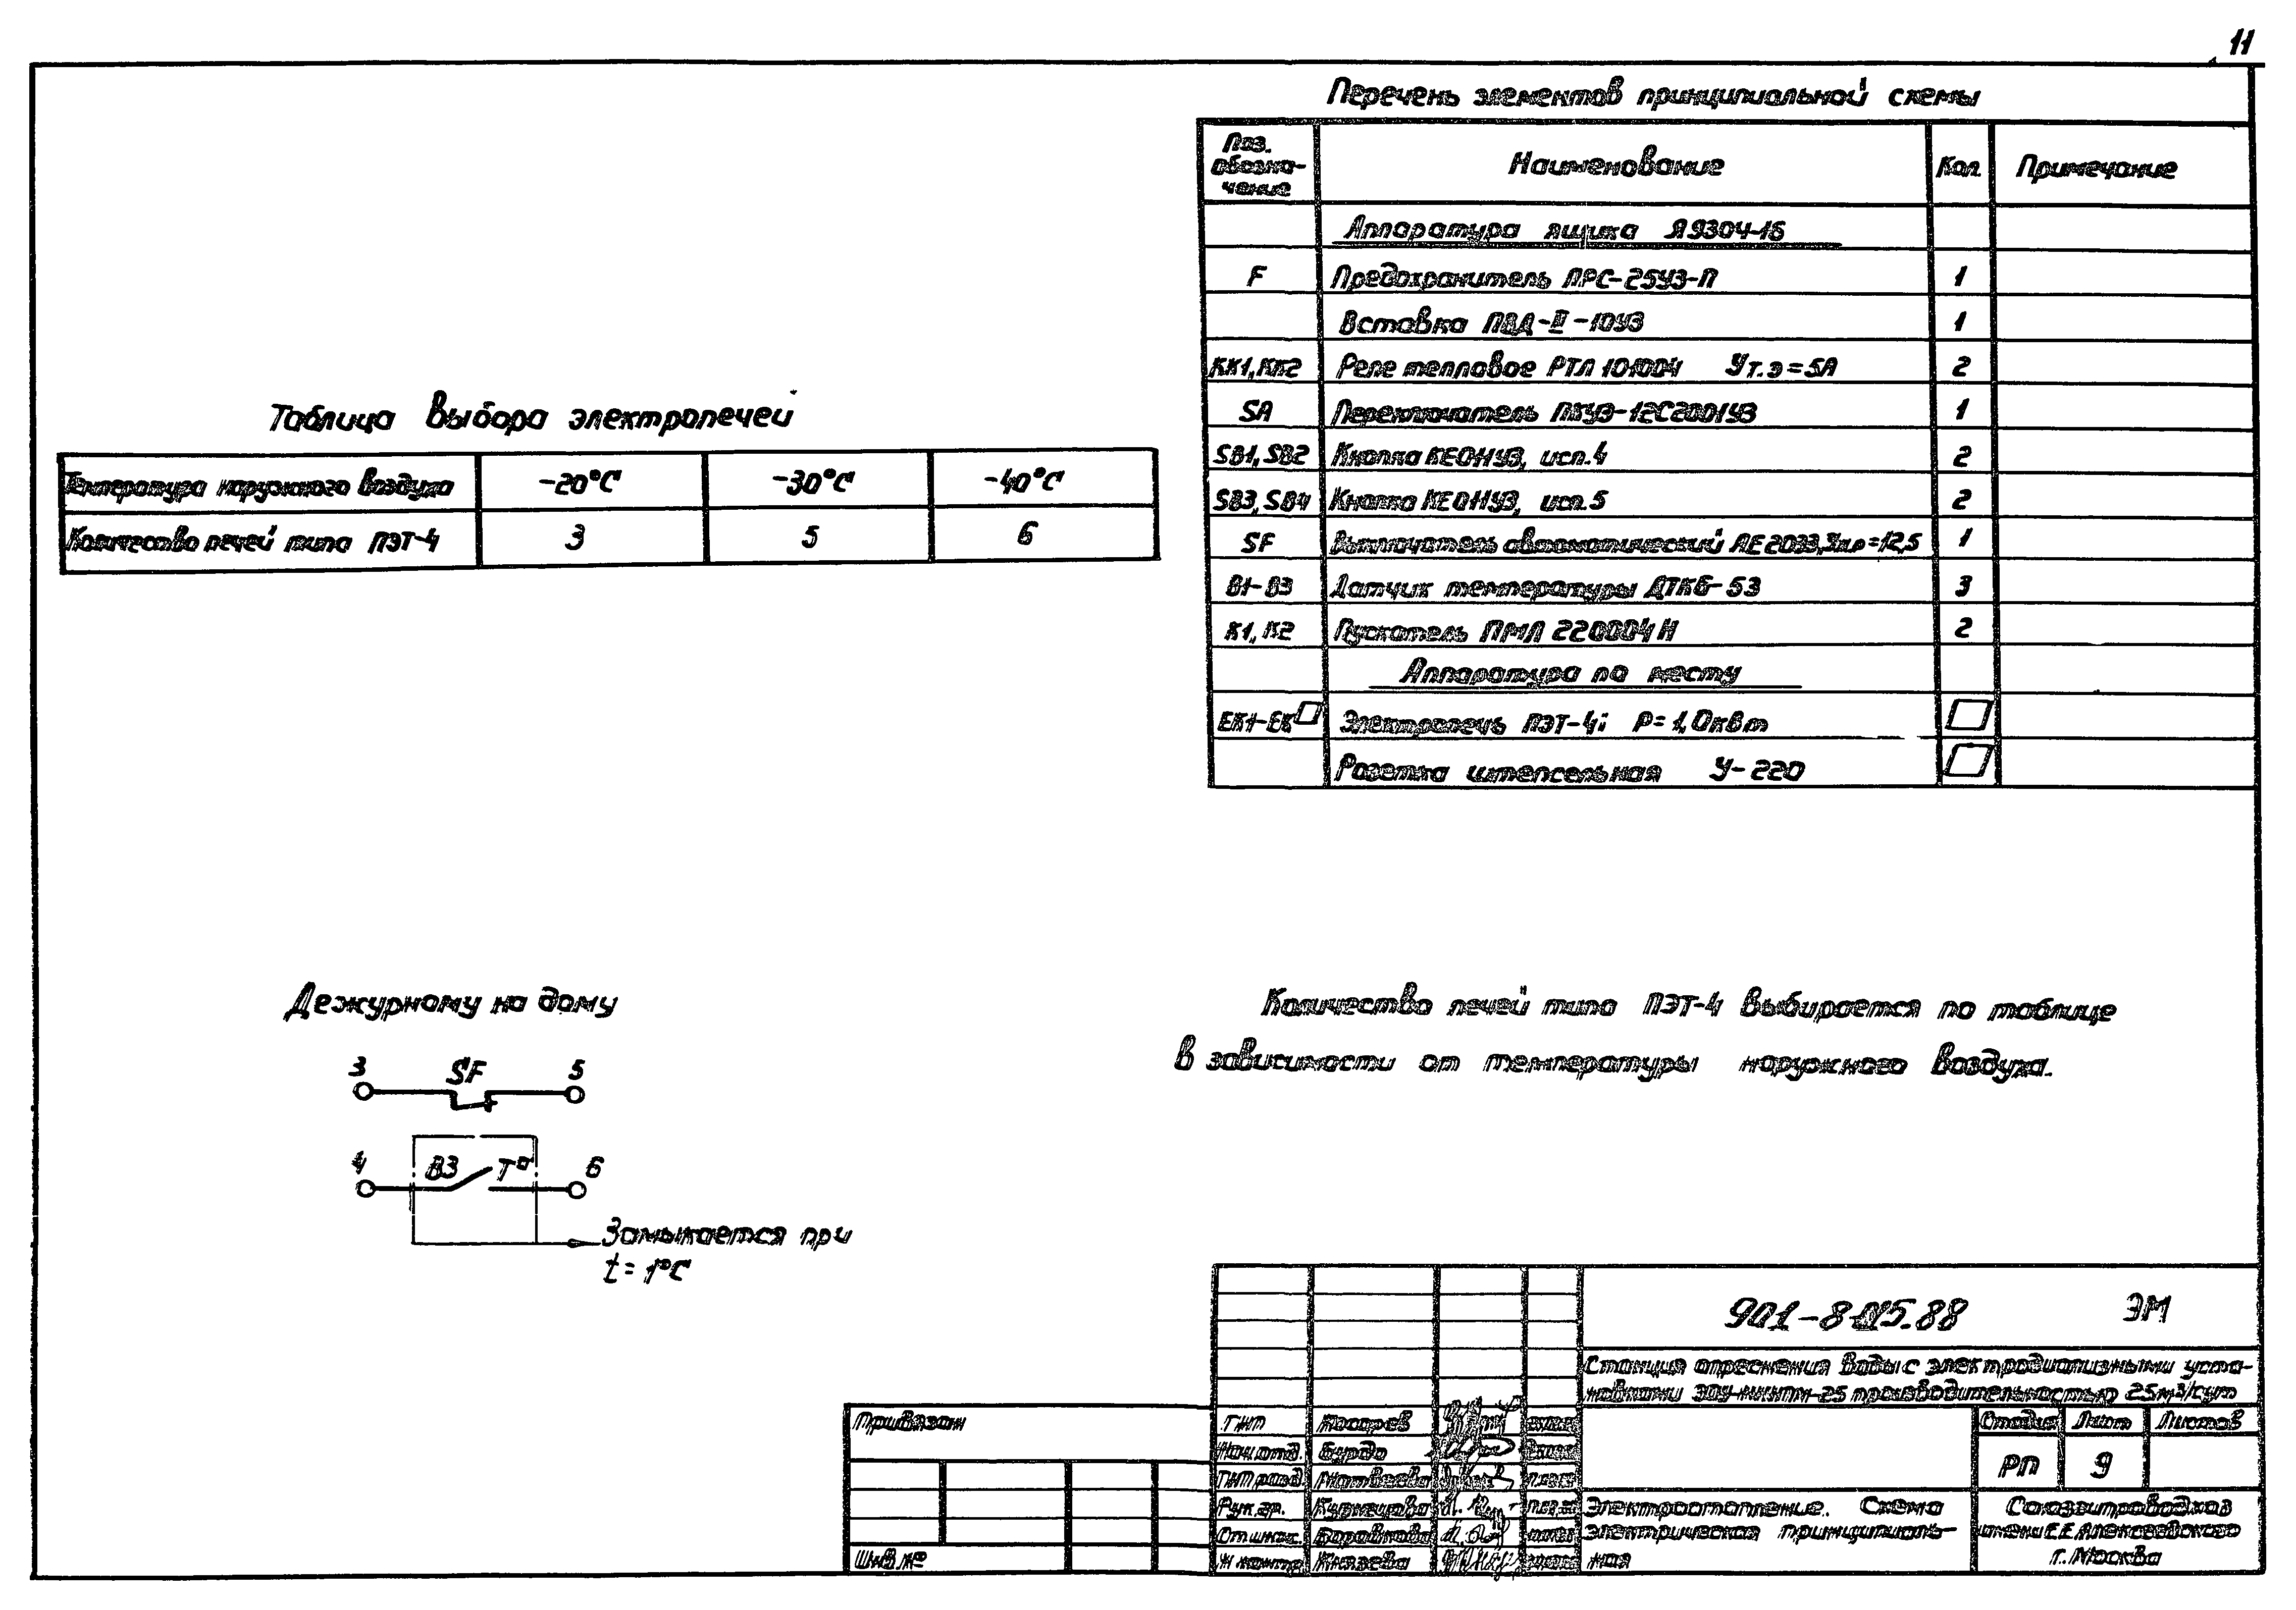 11
Перечень элементов принципиальной схемы
Поз. обозна-чение Наименование Кол. Примечание
Аппаратура ящика Я9304-16
F Предохранитель ПРС-25У3-П 1
Вставка ПВД-II-10У3 1
КК1, КК2 Реле тепловое РТЛ 101004 Ут.э=5А 2
SA Переключатель ПКУ3-12С2001У3 1
SB1, SB2 Кнопка КЕ011У3, исп.4 2
SB3, SB4 Кнопка КЕ011У3, исп.5 2
SF Выключатель автоматический АЕ2033, =12,5 1
В1-В3 Датчик температуры ДТКБ-53 3
К1, К2 Пускатель ПМЛ 220004Н 2
Аппаратура по месту
ЕК1-ЕК Электропечь ПЭТ-4; Р=1,0кВт
Розетка штепсельная У-220
Таблица выбора электропечей
Температура наружного воздуха -20°С -30°С -40°С
Количество печей типа ПЭТ-4 3 5 6
Дежурному на дому
3 SF 5
4 В3 Т° 6
Замыкается при
t=1°С
Количество печей типа ПЭТ-4 выбирается по таблице
в зависимости от температуры наружного воздуха.
901-8-15.88 ЭМ
Станция опреснения воды с электродиализными уста-
новками -25 производительностью 25м³/сут
Привязан
ГИП Косарев
Нач.отд. Бурдо
ГИП разд. Матвеева
Рук.гр. Кузнецова
Ст.инж. Боровкова
Н.контр. Князева
Инв.№
Стадия Лист Листов
РП 9
Электроотопление. Схема
электрическая принципиаль-
ная
Союзгипроводхоз
имени Е.Е.Алексеевского
г.Москва